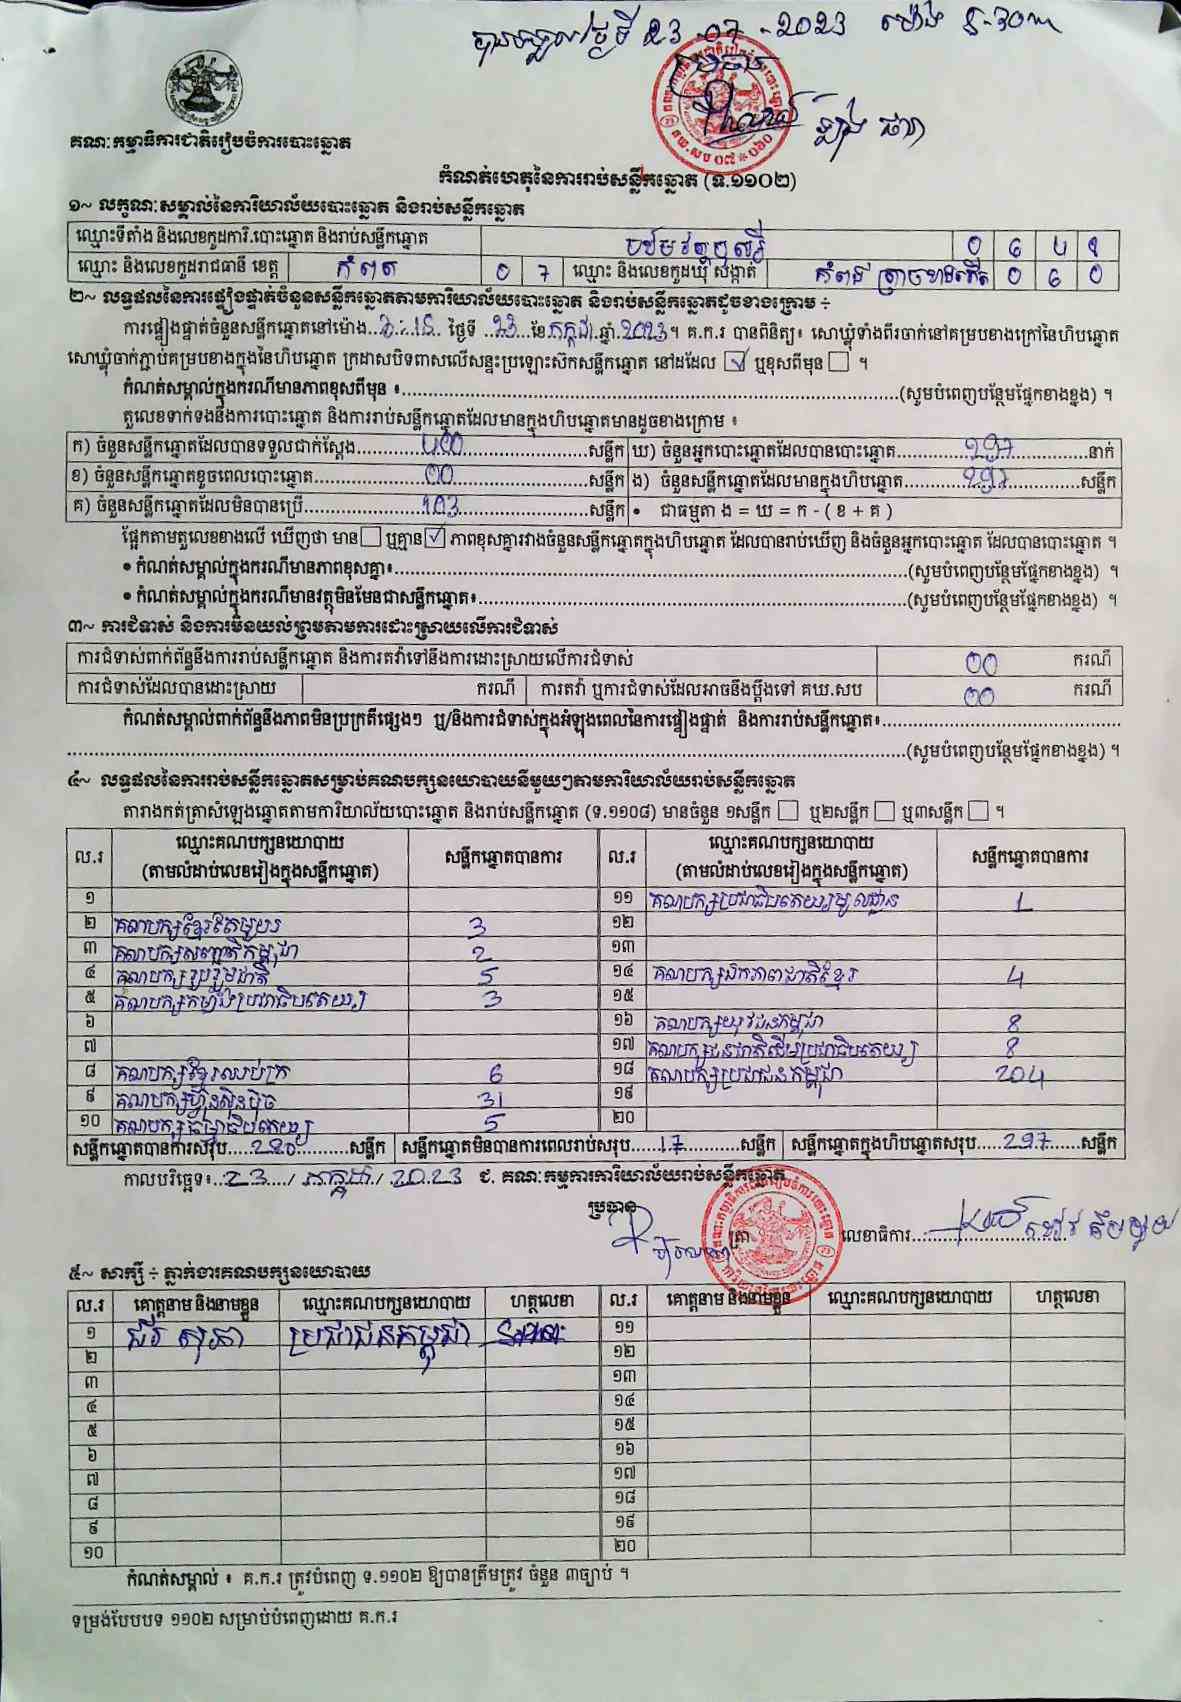 23-07-2023
គណៈកម្មាធិការជាតិរៀបចំការបោះឆ្នោត
កំណត់ហេតុនៃការរាប់សន្លឹកឆ្នោត (ទ.១១០២)
១~ លក្ខណៈសម្គាល់នៃការិយាល័យបោះឆ្នោត និងរាប់សន្លឹកឆ្នោត
ឈ្មោះទីតាំង និងលេខកូដការិ.បោះឆ្នោត និងរាប់សន្លឹកឆ្នោត
ឈ្មោះ និងលេខកូដរាជធានី ខេត្ត កំពត 0 7 ឈ្មោះ និងលេខកូដឃុំ សង្កាត់ 0 6 0
២~ លទ្ធផលនៃការផ្ទៀងផ្ទាត់ចំនួនសន្លឹកឆ្នោតតាមការិយាល័យបោះឆ្នោត និងរាប់សន្លឹកឆ្នោតដូចខាងក្រោម ÷
ការផ្ទៀងផ្ទាត់ចំនួនសន្លឹកឆ្នោតនៅម៉ោង........ ថ្ងៃទី ..23..ខែ.កក្កដា.ឆ្នាំ.2023។ គ.ក.រ បានពិនិត្យ៖ សោឃ្លុំទាំងពីរចាក់នៅគម្របខាងក្រៅនៃហិបឆ្នោត
សោឃ្លុំចាក់ភ្ជាប់គម្របខាងក្នុងនៃហិបឆ្នោត ក្រដាសបិទពាសលើសន្ទះប្រឡោះស៊កសន្លឹកឆ្នោត នៅដដែល ☑ ឬខុសពីមុន ☐ ។
កំណត់សម្គាល់ក្នុងករណីមានភាពខុសពីមុន ៖..........(សូមបំពេញបន្ថែមផ្នែកខាងខ្នង) ។
តួលេខទាក់ទងនឹងការបោះឆ្នោត និងការរាប់សន្លឹកឆ្នោតដែលមានក្នុងហិបឆ្នោតមានដូចខាងក្រោម ៖
ក) ចំនួនសន្លឹកឆ្នោតដែលបានទទួលជាក់ស្តែង....400....សន្លឹក ឃ) ចំនួនអ្នកបោះឆ្នោតដែលបានបោះឆ្នោត....297....នាក់
ខ) ចំនួនសន្លឹកឆ្នោតខូចពេលបោះឆ្នោត....00....សន្លឹក ង) ចំនួនសន្លឹកឆ្នោតដែលមានក្នុងហិបឆ្នោត....297....សន្លឹក
គ) ចំនួនសន្លឹកឆ្នោតដែលមិនបានប្រើ....103....សន្លឹក • ជាធម្មតា ង = ឃ = ក - ( ខ + គ )
ផ្អែកតាមតួលេខខាងលើ ឃើញថា មាន ☐ ឬគ្មាន ☑ ភាពខុសគ្នារវាងចំនួនសន្លឹកឆ្នោតក្នុងហិបឆ្នោត ដែលបានរាប់ឃើញ និងចំនួនអ្នកបោះឆ្នោត ដែលបានបោះឆ្នោត ។
• កំណត់សម្គាល់ក្នុងករណីមានភាពខុសគ្នា៖..........(សូមបំពេញបន្ថែមផ្នែកខាងខ្នង) ។
• កំណត់សម្គាល់ក្នុងករណីមានវត្ថុមិនមែនជាសន្លឹកឆ្នោត៖..........(សូមបំពេញបន្ថែមផ្នែកខាងខ្នង) ។
៣~ ការជំទាស់ និងការមិនយល់ព្រមតាមការដោះស្រាយលើការជំទាស់
ការជំទាស់ពាក់ព័ន្ធនឹងការរាប់សន្លឹកឆ្នោត និងការតវ៉ាទៅនឹងការដោះស្រាយលើការជំទាស់ 00 ករណី
ការជំទាស់ដែលបានដោះស្រាយ ករណី ការតវ៉ា ឬការជំទាស់ដែលអាចនឹងប្តឹងទៅ គឃ.សប 00 ករណី
កំណត់សម្គាល់ពាក់ព័ន្ធនឹងភាពមិនប្រក្រតីផ្សេងៗ ឬ/និងការជំទាស់ក្នុងអំឡុងពេលនៃការផ្ទៀងផ្ទាត់ និងការរាប់សន្លឹកឆ្នោត៖..........
..........(សូមបំពេញបន្ថែមផ្នែកខាងខ្នង) ។
៤~ លទ្ធផលនៃការរាប់សន្លឹកឆ្នោតសម្រាប់គណបក្សនយោបាយនីមួយៗតាមការិយាល័យរាប់សន្លឹកឆ្នោត
តារាងកត់ត្រាសំឡេងឆ្នោតតាមការិយាល័យបោះឆ្នោត និងរាប់សន្លឹកឆ្នោត (ទ.១១០៨) មានចំនួន ១សន្លឹក ☐ ឬ២សន្លឹក ☐ ឬ៣សន្លឹក ☐ ។
ល.រ ឈ្មោះគណបក្សនយោបាយ (តាមលំដាប់លេខរៀងក្នុងសន្លឹកឆ្នោត) សន្លឹកឆ្នោតបានការ ល.រ ឈ្មោះគណបក្សនយោបាយ (តាមលំដាប់លេខរៀងក្នុងសន្លឹកឆ្នោត) សន្លឹកឆ្នោតបានការ
១ ១១ គណបក្សប្រជាធិបតេយ្យមូលដ្ឋាន 1
២ គណបក្សខ្មែរតែមួយ 3 ១២
៣ គណបក្សសញ្ជាតិកម្ពុជា 2 ១៣
៤ គណបក្សរួបរួមជាតិ 5 ១៤ គណបក្សឯកភាពជាតិខ្មែរ 4
៥ គណបក្សកម្លាំងប្រជាធិបតេយ្យ 3 ១៥
៦ ១៦ គណបក្សយុវជនកម្ពុជា 8
៧ ១៧ គណបក្សជនជាតិដើមប្រជាធិបតេយ្យ 8
៨ គណបក្សខ្មែរឈប់ក្រ 6 ១៨ គណបក្សប្រជាជនកម្ពុជា 204
៩ គណបក្សហ៊្វុនស៊ិនប៉ិច 31 ១៩
១០ គណបក្សធម្មាធិបតេយ្យ 5 ២០
សន្លឹកឆ្នោតបានការសរុប....280....សន្លឹក សន្លឹកឆ្នោតមិនបានការពេលរាប់សរុប....17....សន្លឹក សន្លឹកឆ្នោតក្នុងហិបឆ្នោតសរុប....297....សន្លឹក
កាលបរិច្ឆេទ៖..23../ កក្កដា / 2023 ជ. គណៈកម្មការការិយាល័យរាប់សន្លឹកឆ្នោត
ប្រធាន
ត្រា លេខាធិការ..........
៥~ សាក្សី ÷ ភ្នាក់ងារគណបក្សនយោបាយ
ល.រ គោត្តនាម និងនាមខ្លួន ឈ្មោះគណបក្សនយោបាយ ហត្ថលេខា ល.រ គោត្តនាម និងនាមខ្លួន ឈ្មោះគណបក្សនយោបាយ ហត្ថលេខា
១ ប្រជាជនកម្ពុជា ១១
២ ១២
៣ ១៣
៤ ១៤
៥ ១៥
៦ ១៦
៧ ១៧
៨ ១៨
៩ ១៩
១០ ២០
កំណត់សម្គាល់ ៖ គ.ក.រ ត្រូវបំពេញ ទ.១១០២ ឱ្យបានត្រឹមត្រូវ ចំនួន ៣ច្បាប់ ។
ទម្រង់បែបបទ ១១០២ សម្រាប់បំពេញដោយ គ.ក.រ